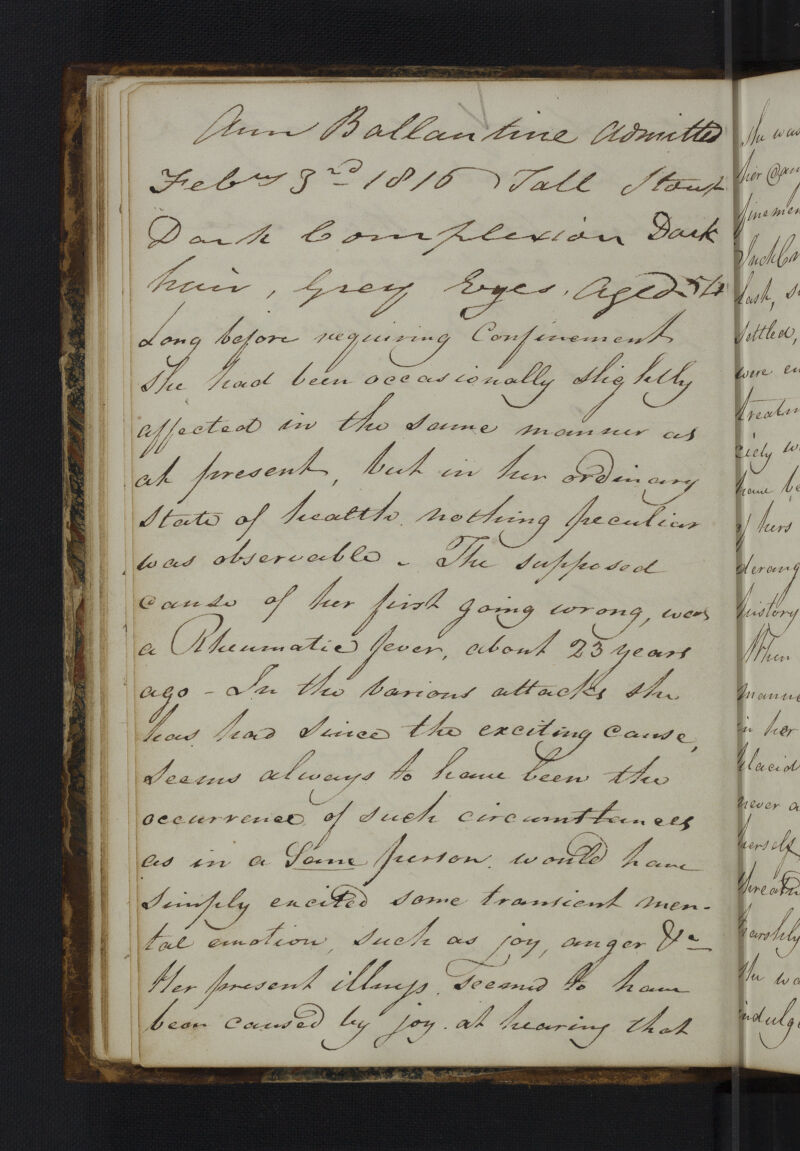 Ann Ballantine Admitted
Febry 3rd 1816 Tall Stout
Dark Complexion Dark
hair, Grey Eyes. Aged 54
Long before requiring Confinement
She had been occasionally slightly
affected in the same manner as
at present, but in her ordinary
State of health nothing peculiar
was observable. The supposed
cause of her first going wrong, was
a Rheumatic fever, about 23 years
ago - In the various attacks she
has had since the exciting cause,
seems always to have been the
occurrence of such circumstances
as in a Sane person would have
simply excited some transient men-
tal emotion, such as joy, anger &c
Her present illness seemed to have
been caused by joy at hearing that
She was
her
finement
last, s
Settled,
were en
treatm
w
have be
of hers
derang
history
When
manne
in her
placid
never a
herself
threat
harshly
She wa
indulge